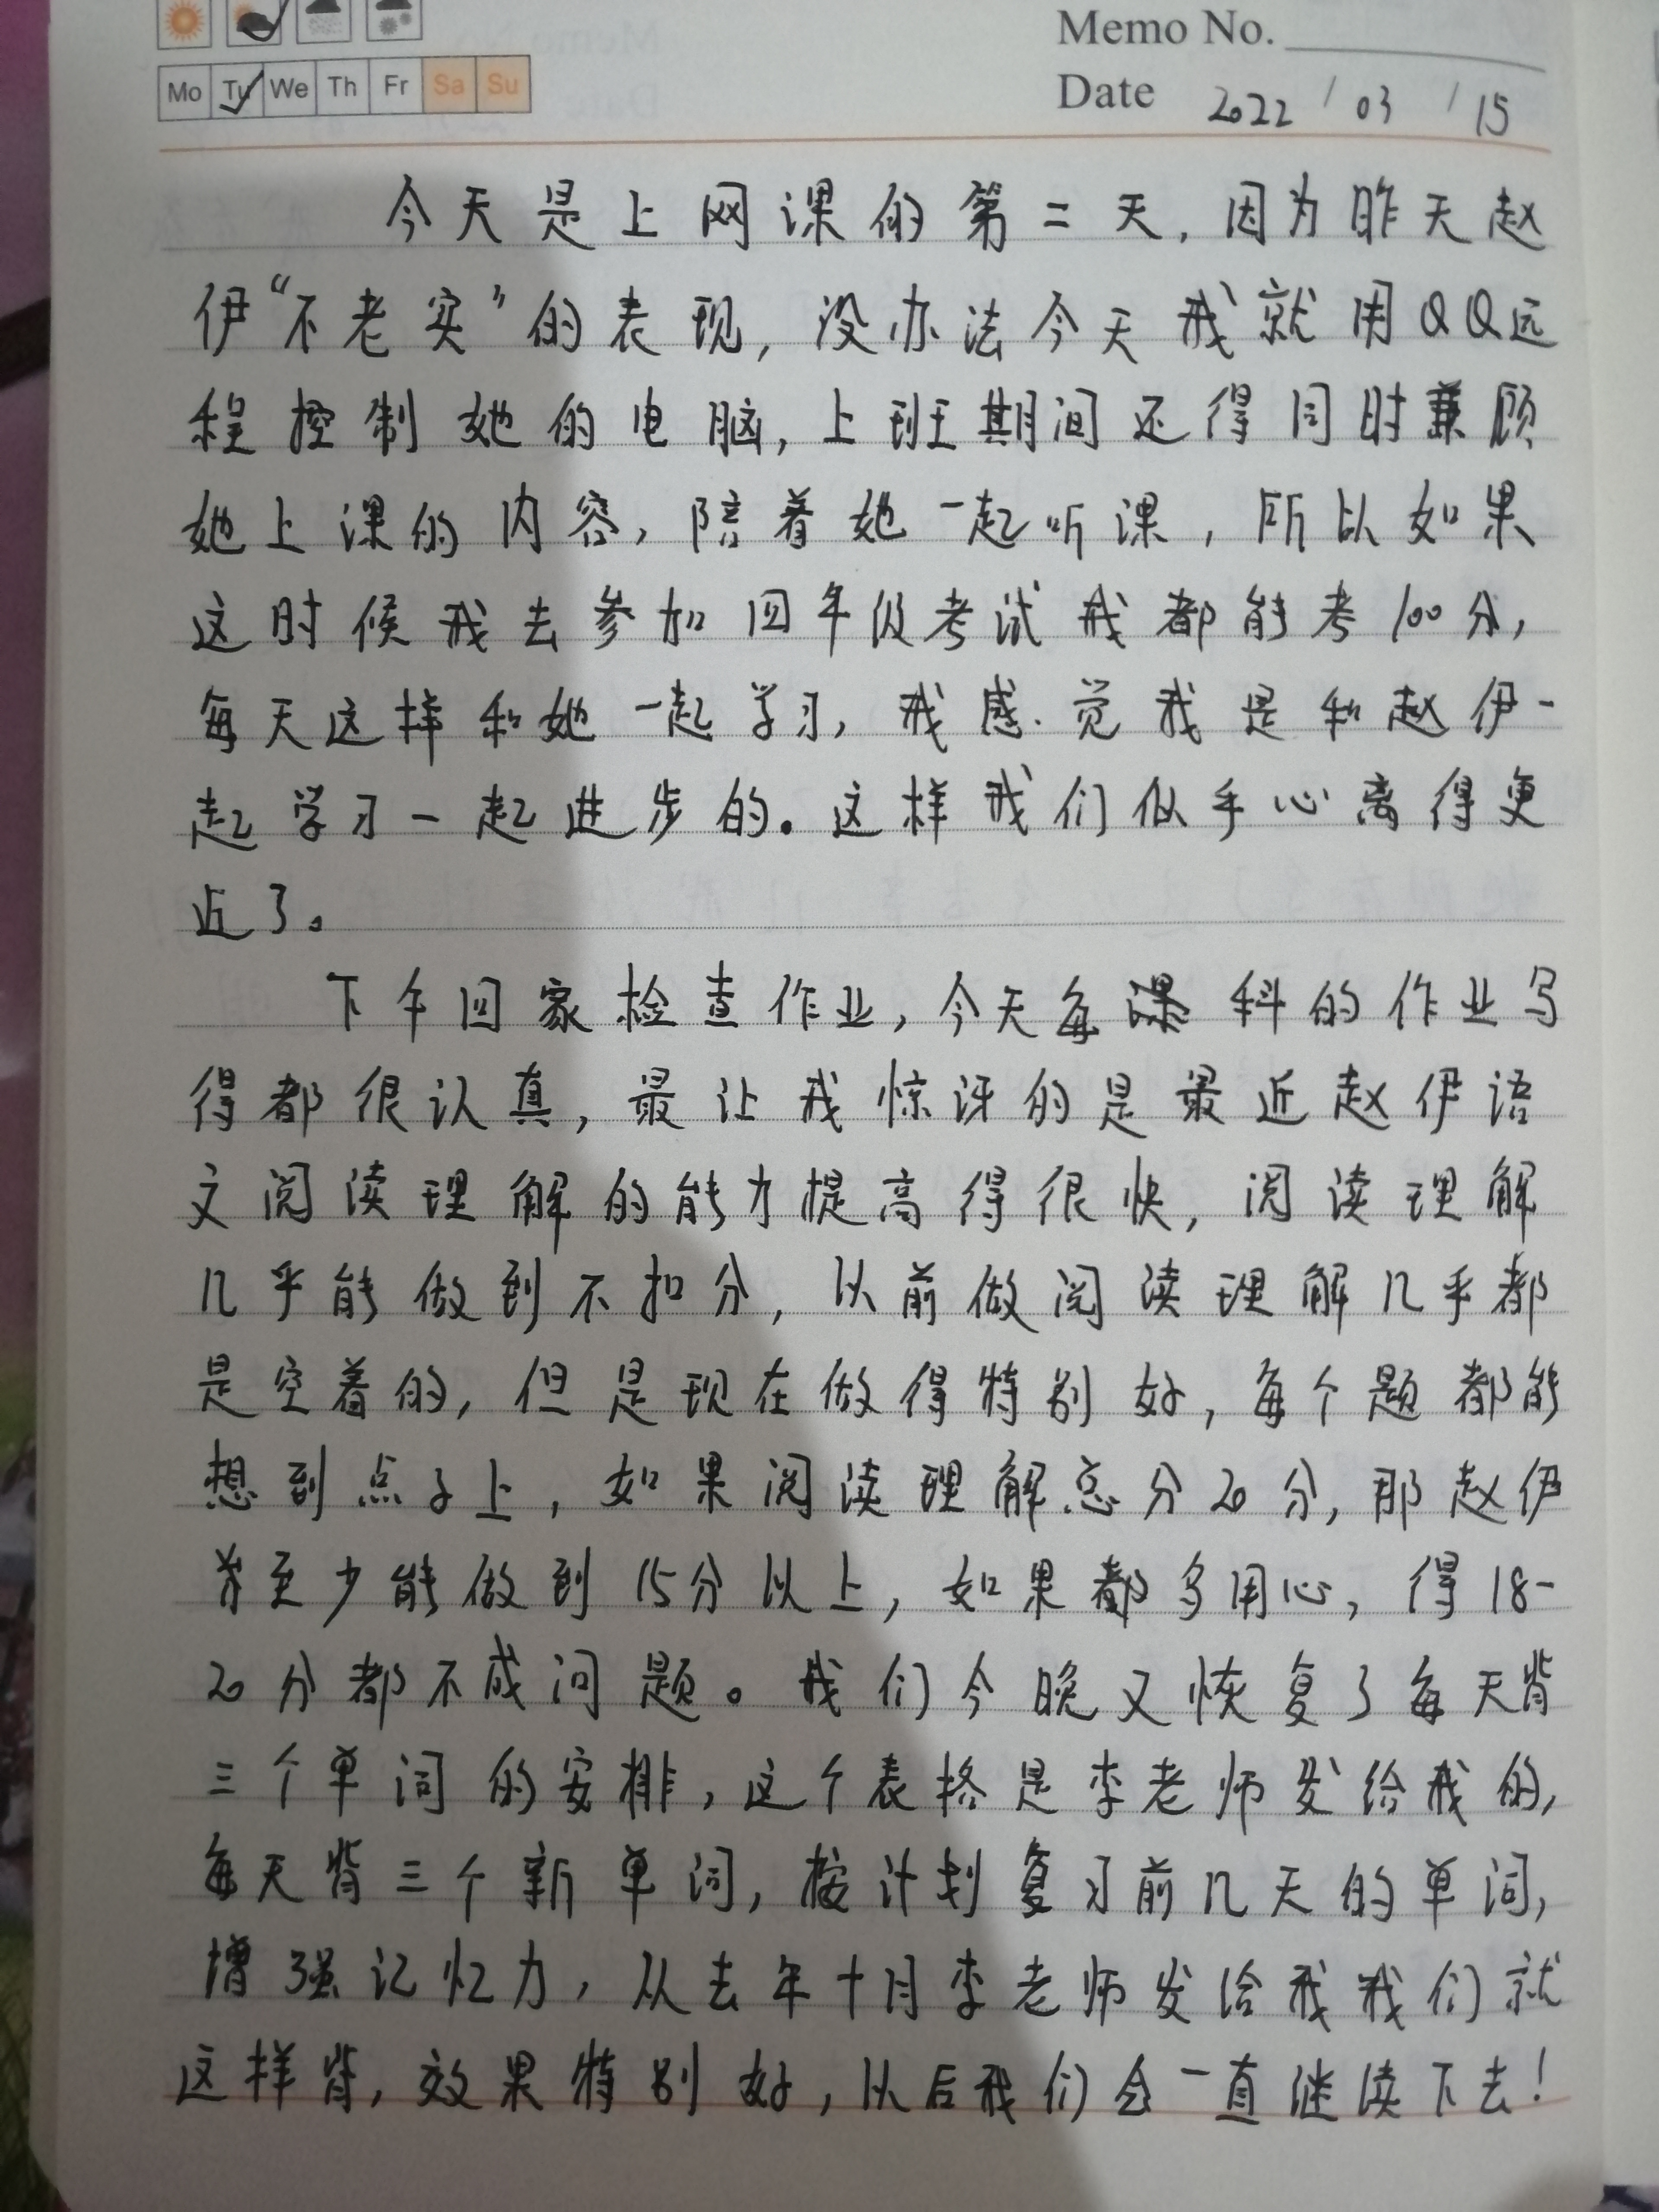 Memo No.
Mo Tu We Th Fr Sa Su
Date 2022 / 03 / 15
今天是上网课的第二天，因为昨天赵
伊“不老实”的表现，没办法今天我就用QQ远
程控制她的电脑，上班期间还得同时兼顾
她上课的内容，陪着她一起听课，所以如果
这时候我去参加四年级考试我都能考100分，
每天这样和她一起学习，我感觉我是和赵伊一
起学习一起进步的。这样我们似乎心离得更
近了。
下午回家检查作业，今天每课科的作业写
得都很认真，最让我惊讶的是最近赵伊语
文阅读理解的能力提高得很快，阅读理解
几乎能做到不扣分，以前做阅读理解几乎都
是空着的，但是现在做得特别好，每个题都能
想到点子上，如果阅读理解总分20分，那赵伊
至少能做到15分以上，如果都多用心，得18-
20分都不成问题。我们今晚又恢复了每天背
三个单词的安排，这个表格是李老师发给我的，
每天背三个新单词，按计划复习前几天的单词，
增强记忆力，从去年十月李老师发给我我们就
这样背，效果特别好，以后我们会一直继续下去！